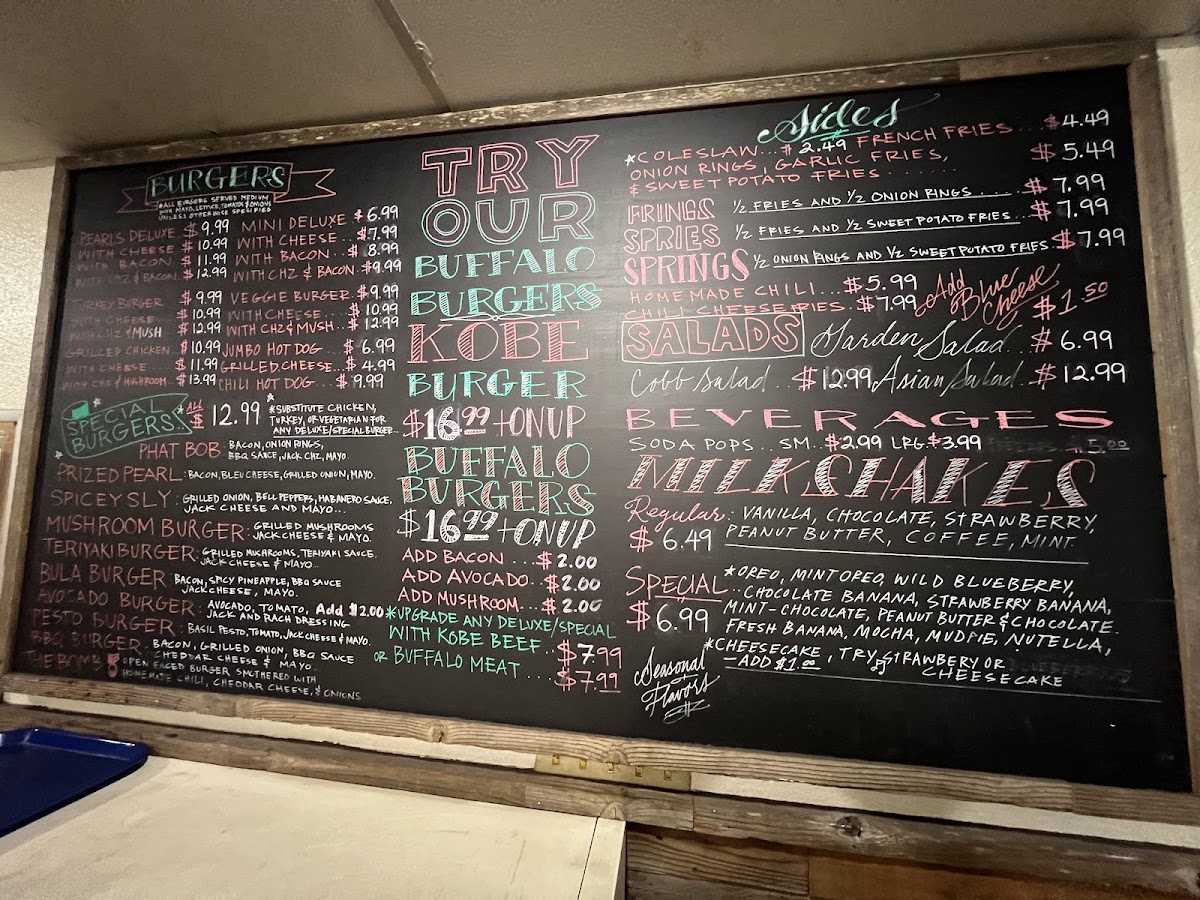 BURGERS
*ALL BURGERS SERVED MEDIUM
WITH MAYO, LETTUCE, TOMATO & ONIONS
UNLESS OTHERWISE SPECIFIED
PEARLS DELUXE $ 9.99
WITH CHEESE $ 10.99
WITH BACON $ 11.99
WITH CHZ & BACON $ 12.99
MINI DELUXE $ 6.99
WITH CHEESE $ 7.99
WITH BACON $ 8.99
WITH CHZ & BACON $ 9.99
TURKEY BURGER $ 9.99
WITH CHEESE $ 10.99
WITH CHZ & MUSH $ 12.99
GRILLED CHICKEN $ 10.99
WITH CHEESE $ 11.99
WITH CHZ & MUSHROOM $ 13.99
VEGGIE BURGER $ 9.99
WITH CHEESE $ 10.99
WITH CHZ & MUSH $ 12.99
JUMBO HOT DOG $ 6.99
GRILLED CHEESE $ 4.99
CHILI HOT DOG $ 9.99
SPECIAL
BURGERS
ALL $ 12.99
*SUBSTITUTE CHICKEN,
TURKEY, OR VEGETARIAN FOR
ANY DELUXE/SPECIAL BURGER
PHAT BOB: BACON, ONION RINGS,
BBQ SAUCE, JACK CHZ, MAYO.
PRIZED PEARL: BACON, BLEU CHEESE, GRILLED ONION, MAYO.
SPICEY SLY: GRILLED ONION, BELL PEPPERS, HABANERO SAUCE,
JACK CHEESE AND MAYO...
MUSHROOM BURGER: GRILLED MUSHROOMS
JACK CHEESE & MAYO.
TERIYAKI BURGER: GRILLED MUSHROOMS, TERIYAKI SAUCE,
JACK CHEESE & MAYO..
BULA BURGER: BACON, SPICY PINEAPPLE, BBQ SAUCE
JACK CHEESE, MAYO.
AVOCADO BURGER: AVOCADO, TOMATO, Add $2.00
JACK AND RACH DRESSING
PESTO BURGER: BASIL PESTO, TOMATO, JACK CHEESE & MAYO.
BBQ BURGER: BACON, GRILLED ONION, BBQ SAUCE
CHEDDAR CHEESE & MAYO.
THE BOMB OPEN FACED BURGER SMOTHERED WITH
HOMEMADE CHILI, CHEDDAR CHEESE, & ONIONS
TRY
OUR
BUFFALO
BURGERS
KOBE
BURGER
$16.99 + ON UP
BUFFALO
BURGERS
$16.99 + ON UP
ADD BACON $2.00
ADD AVOCADO $2.00
ADD MUSHROOM $2.00
*UPGRADE ANY DELUXE/SPECIAL
WITH KOBE BEEF $7.99
OR BUFFALO MEAT $7.99
Sides
*COLESLAW...$2.49 FRENCH FRIES...$4.49
ONION RINGS, GARLIC FRIES,
& SWEET POTATO FRIES... $5.49
FRINGS 1/2 FRIES AND 1/2 ONION RINGS $7.99
SPRIES 1/2 FRIES AND 1/2 SWEET POTATO FRIES $7.99
SPRINGS 1/2 ONION RINGS AND 1/2 SWEET POTATO FRIES $7.99
HOMEMADE CHILI $5.99
CHILI CHEESE FRIES $7.99
Add Blue Cheese $1.50
SALADS Garden Salad $6.99
Cobb Salad $12.99 Asian Salad $12.99
BEVERAGES
SODA POPS.. SM..$2.99 LRG.$3.99
MILKSHAKES
Regular: VANILLA, CHOCOLATE, STRAWBERRY,
$6.49 PEANUT BUTTER, COFFEE, MINT
SPECIAL *OREO, MINT OREO, WILD BLUEBERRY,
$6.99 CHOCOLATE BANANA, STRAWBERRY BANANA,
MINT-CHOCOLATE, PEANUT BUTTER & CHOCOLATE.
FRESH BANANA, MOCHA, MUDPIE, NUTELLA,
*CHEESECAKE
—ADD $1.00, TRY STRAWBERY OR
CHEESECAKE
Seasonal
Flavors